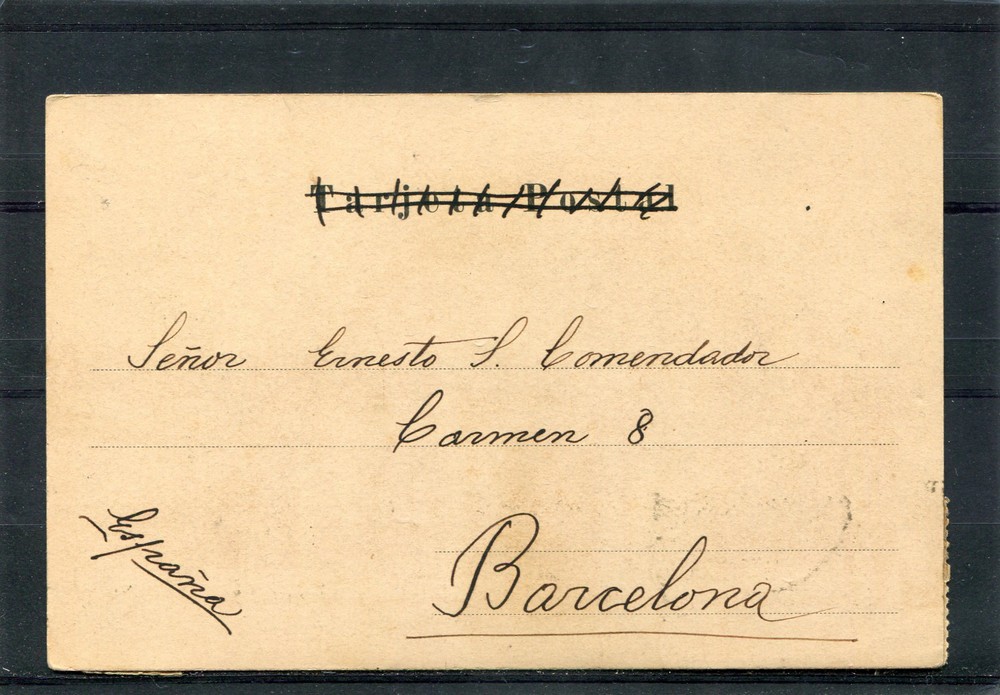 Tarjeta Postal
Señor Ernesto S. Comendador
Carmen 8
España
Barcelona